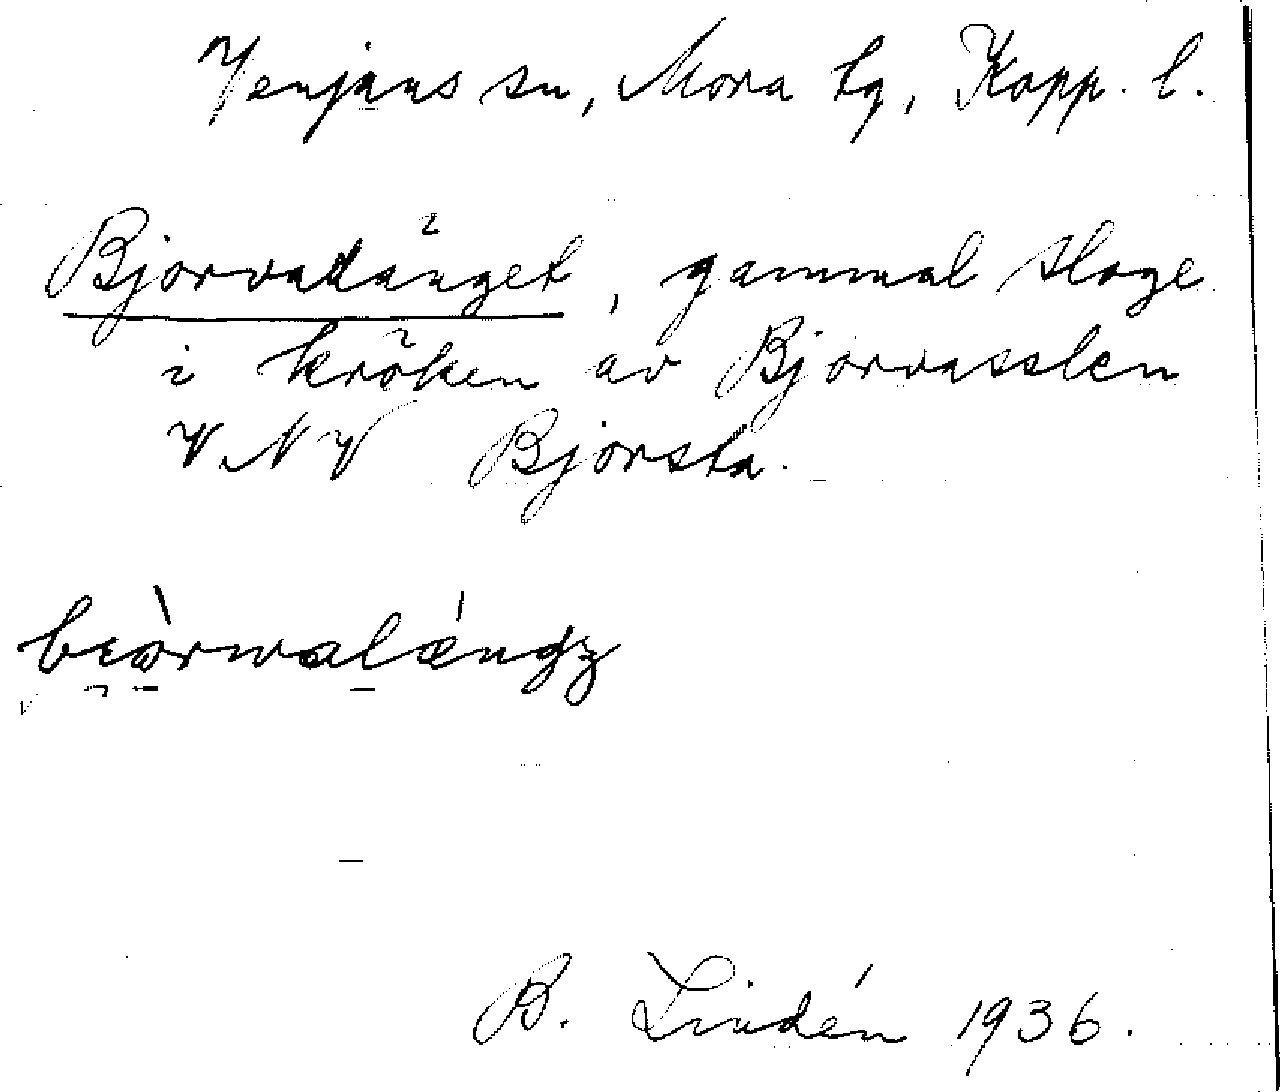 Venjans sn, Mora tg, Kopp. l.
Bjorvadänget, gammal sloge
i kröken av Bjorvasslen
V.NV Bjorsta.
B. Lindén 1936.